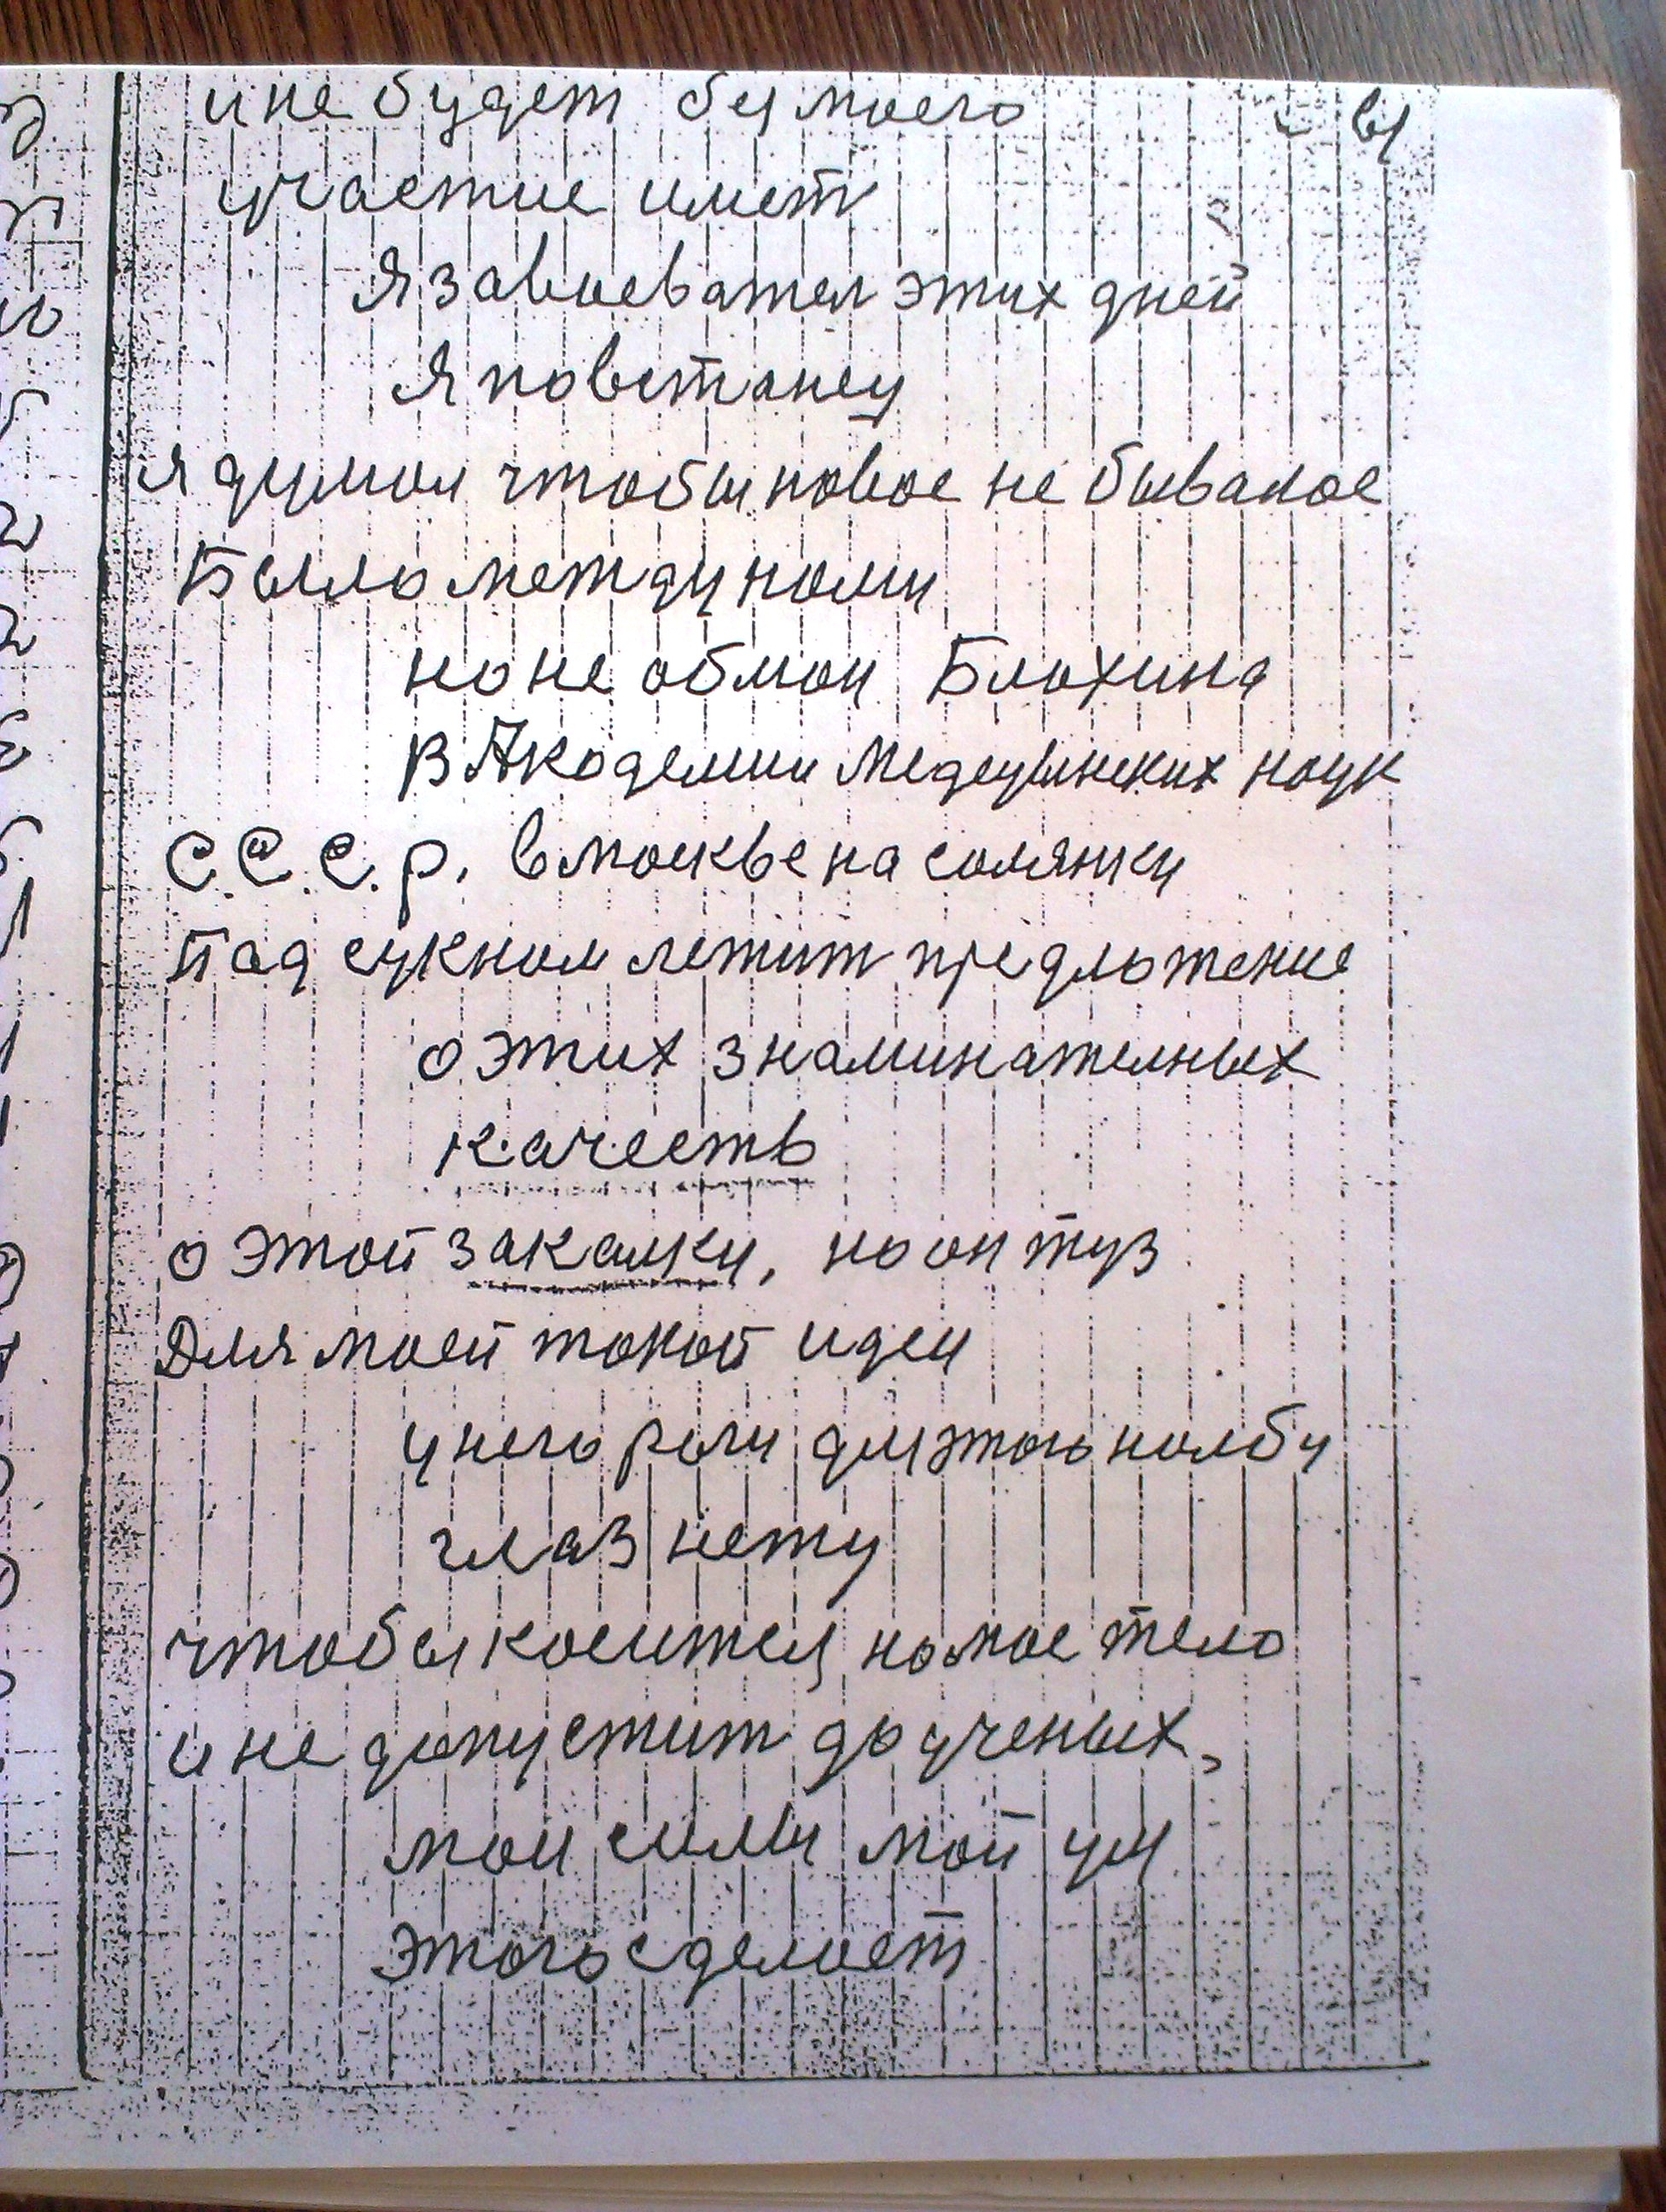 и не будет без моего
участие имет
Я завоевател этих дней
Я повстанец
я думал чтобы новое не бывалое
Было между нами
но не обман Блохина
В Академии Медецынских наук
С.С.С.Р. в москве на солянки
Под сукном лежит предложение
о этих знаминателных
качеств
о этой закалки, но он туз
Для моей такой идеи
у него роги для этого на лбу
глаз нету
чтобы косится на мое тело
и не допустит до ученых,
мои силы мой ум
этого сделает